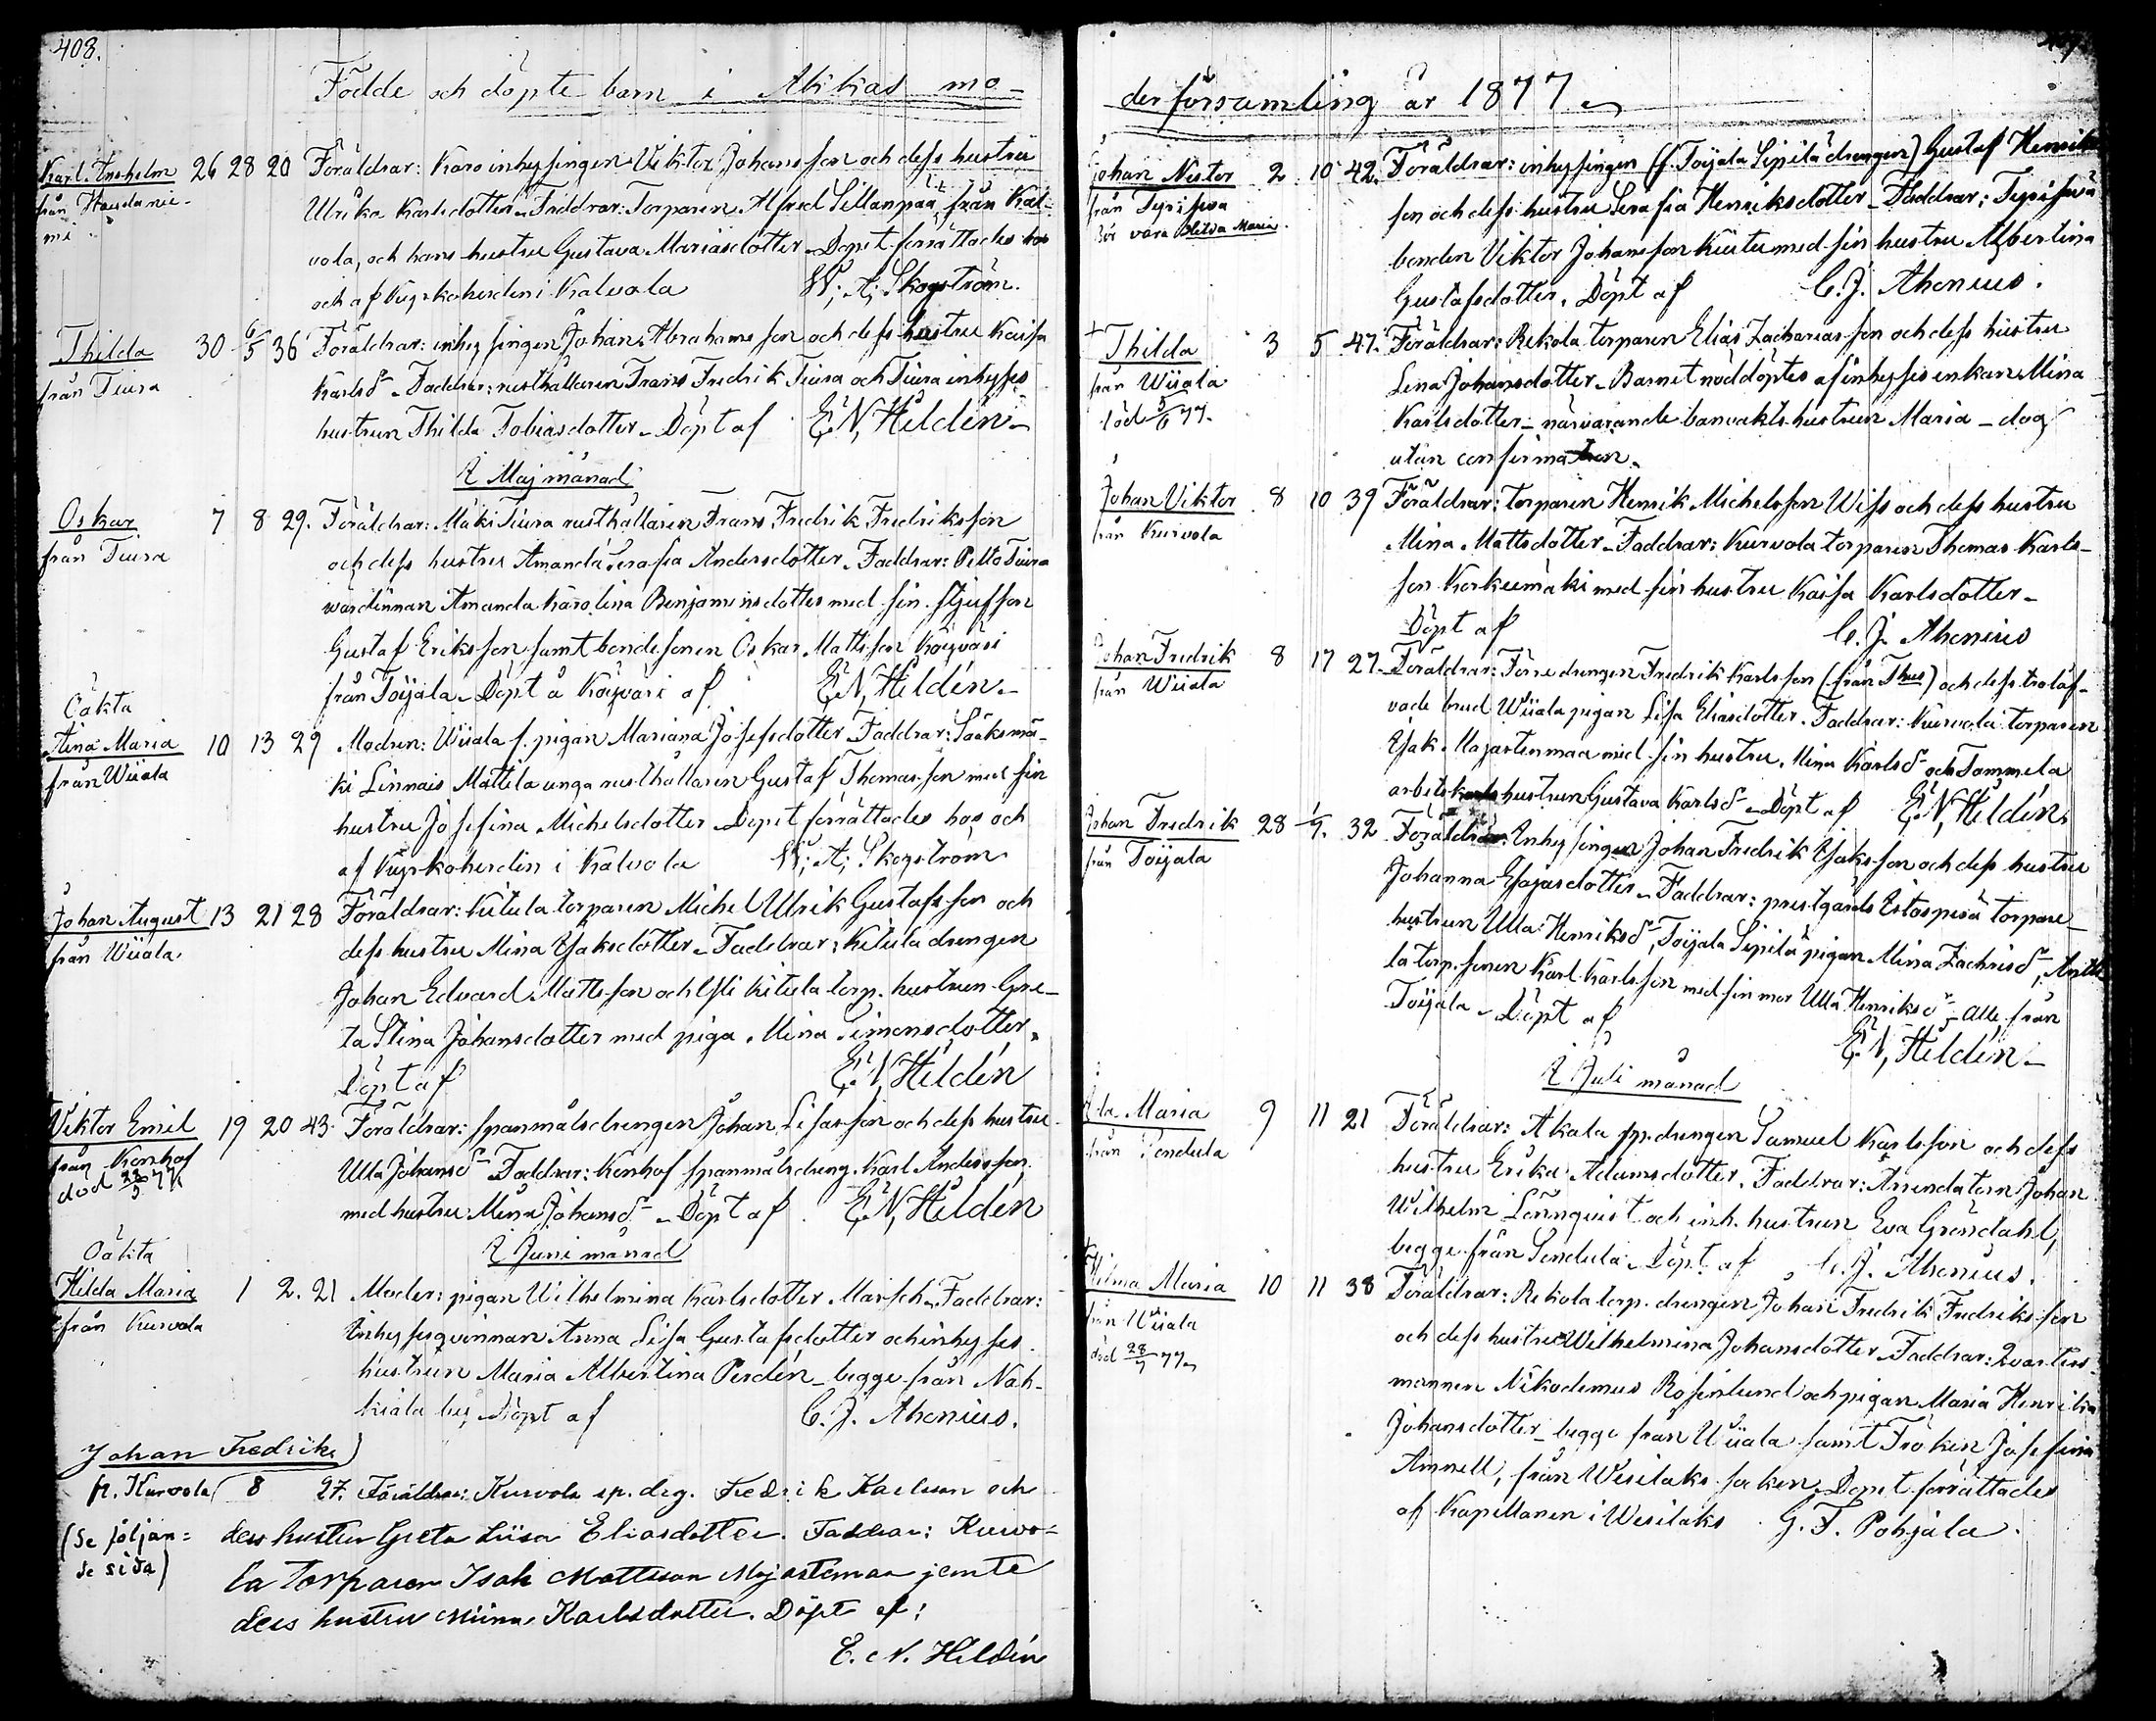 408.
Födde och döpte barn i Akkas mo-
Karl Anshelm 26 28 20 Föräldrar: Karo inhysingen Viktor Johansson och dess hustru
från
Ulrika Karlsdotter. Faddrar: Torparen Alfred Sillanpää, från Kal-
vola, och hans hustru Gustava Mariasdotter. Dopet förrättades hos
och af Kyrkoherden i Kalvola W. A. Skogström.
Thilda 30 6/5 36 Föräldrar: inhysingen Johan Abrahamsson och dess hustru Kaisa
från Tiura
Karlsdr. Faddrar: rusthållaren Frans Fredrik Tiura och Tiura inhyses
hustrun Thilda Tobiasdotter. Döpt af E. N. Hildén
I Maj månad
Oskar 7 8 29. Föräldrar: Mäki Tiura rusthållaren Frans Fredrik Fredriksson
från Tiura
och dess hustru Amanda Serafia Andersdotter. Faddrar: Pelto Tiura
wärdinnan Amanda Karolina Benjaminsdotter med sin stjufson
Gustaf Eriksson samt bondesonen Oskar Mattsson Köyväri
från Toijala. Döpt å Köyväri af E. N. Hildén.
Oäkta
Stina Maria 10 13 29 Modren: Wiiala f. pigan Mariana Josefsdotter. Faddrar: Sääksmä-
från Wiiala
ki Linnais Mattila unga rusthållaren Gustaf Thomasson med sin
hustru Josefina Michelsdotter. Dopet förrättades hos och
af Kyrkoherden i Kalvola W. A. Skogström.
Johan August 13 21 28 Föräldrar: Kitula torparen Michel Ulrik Gustafsson och
från Wiiala.
dess hustru Mina Isaksdotter. Faddrar: Kitula drengen
Johan Edvard Mattsson och Yli Kitula torp. hustrun Gre-
ta Stina Johansdotter med piga Mina Simonsdotter.
Döpt af E. N. Hildén
Viktor Emil 19 20 43. Föräldrar: spanmålsdrengen Johan Lisasson och dess hustru
från Konhof
död 28/5 77
Ulla Johansdr. Faddrar: Konhof spanmålsdreng. Karl Andersson
med hustru Mina Johansdr. Döpt af E. N. Hildén
I Juni månad
Oäkta
Hilda Maria 1 2. 21 Moder: pigan Wilhelmina Karlsdotter Marsch. Faddrar:
från Kurvola
Inhysesqvinnan Anna Lisa Gustafsdotter och inhyses
hustrun Maria Albertina Perdén begge från Nah-
kiala by. Döpt af C. J. Ahonius.
Johan Fredrik
fr. Kurvola 8 27. Föräldrar: Kurvola sp. drg. Fredrik Karlsson och
(Se följan=
de sida)
dess hustru Greta Liisa Eliasdotter. Faddrar: Kurvo=
la torparen Isak Mattsson Majastenmaa jemte
dess hustru Miina Karlsdotter. Döpt af:
E. N. Hildén
der församling år 1877
Johan Nestor 2 10 42. Föräldrar: inhysingen (f. Toijala Sipilä drengen) Gustaf Henriks
från Syrisevä
Bör vara Hilda Maria.
son och dess hustru Serafia Henriksdotter. Faddrar: Syrisevä
bonden Viktor Johansson Kurtu med sin hustru Albertina
Gustafsdotter. Döpt af C. J. Ahonius.
Thilda 3 5 47. Föräldrar: Rekola torparen Elias Zachariasson och dess hustru
från Wiiala
död 5/6 77.
Lena Johansdotter. Barnet nöddöptes af inhyses enkan Mina
Karlsdotter närvarande banvakts hustrun Maria – dog
utan confirmation.
Johan Viktor 8 10 39 Föräldrar: torparen Henrik Michelsson Wiss och dess hustru
från Kurvola
Mina Mattsdotter. Faddrar: Kurvola torparen Thomas Karls-
son Korkeemäki med sin hustru Kaisa Karlsdotter
Döpt af C. J. Ahonius
Johan Fredrik 8 17 27. Föräldrar: Förre drengen Fredrik Karlsson (från Thus) och dess trolof-
från Wiiala
vade brud Wiiala pigan Lisa Eliasdotter. Faddrar: Kurvola torparen
Isak Majastenmaa med sin hustru Mina Karlsdr och Tammela
arbetskarls hustrun Gustava Karlsdr. Döpt af E. N. Hildén.
Johan Fredrik 28 1/7. 32 Föräldrar: Inhysingen Johan Fredrik Isaksson och dess hustru
från Toijala
Johanna Esajasdotter. Faddrar: prestgårds torpare-
hustrun Ulla Henriksdr, Toijala Sipilä pigan Mina Zachrisdr, Antti-
la torp. sonen Karl Karlsson med sin mor Ulla Henriksdr alle från
Toijala. Döpt af E. N. Hildén
I Juli månad
Maria 9 11 21 Föräldrar: Akala sp. drengen Samuel Karlsson och dess
från Sendula
hustru Erika Adamsdotter. Faddrar: Arrendatorn Johan
Wilhelm Lönnqvist och inh. hustrun Eva Gröndahl,
begge från Sendula. Döpt af C. J. Ahonius.
Hilma Maria 10 11 38 Föräldrar: Rekola torp. drengen Johan Fredrik Fredriksson
från Wiiala
död 28/7 77.
och dess hustru Wilhelmina Johansdotter. Faddrar: Qvarters-
mannen Nikodemus Rosenlund och pigan Maria Henrika
Johansdotter begge från Wiiala samt Fröken Josefina
Amnell, från Wesilaks soken. Dopet förrättades
af Kapellanen i Wesilaks G. F. Pohjala.